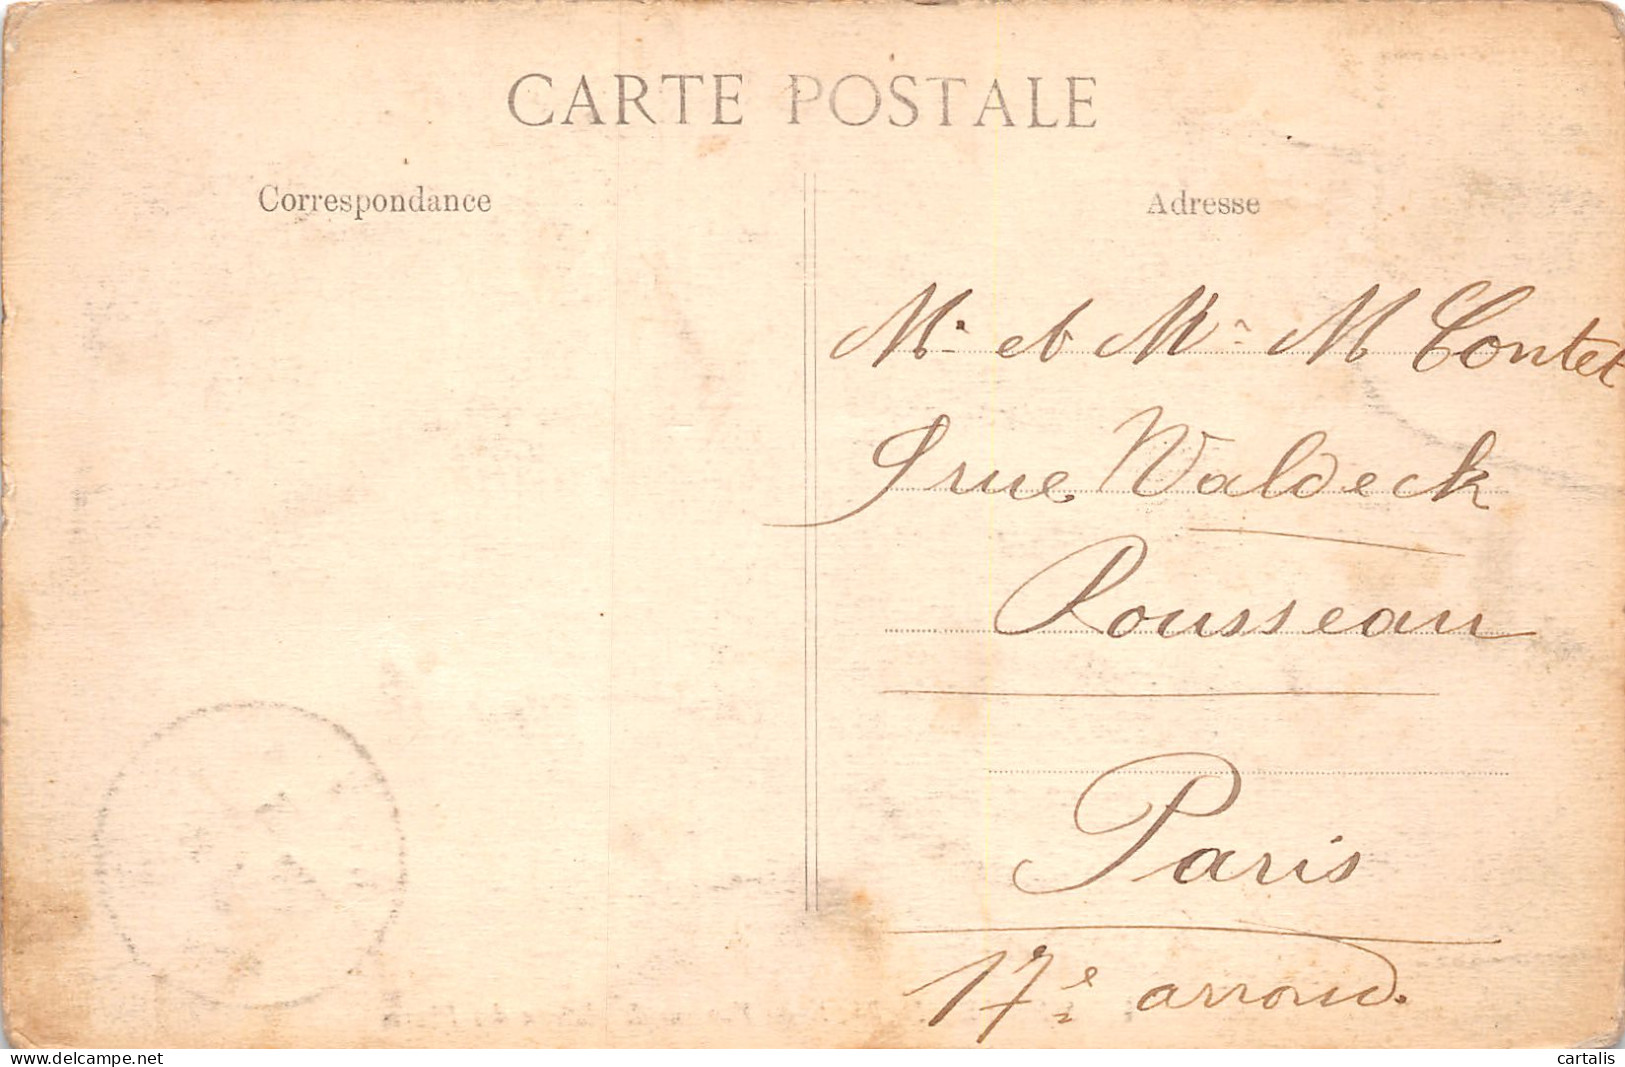 CARTE POSTALE
Correspondance
Adresse
Mr et Mme M Contet
9 rue Waldeck
Rousseau
Paris
17e arrond.
cartalis